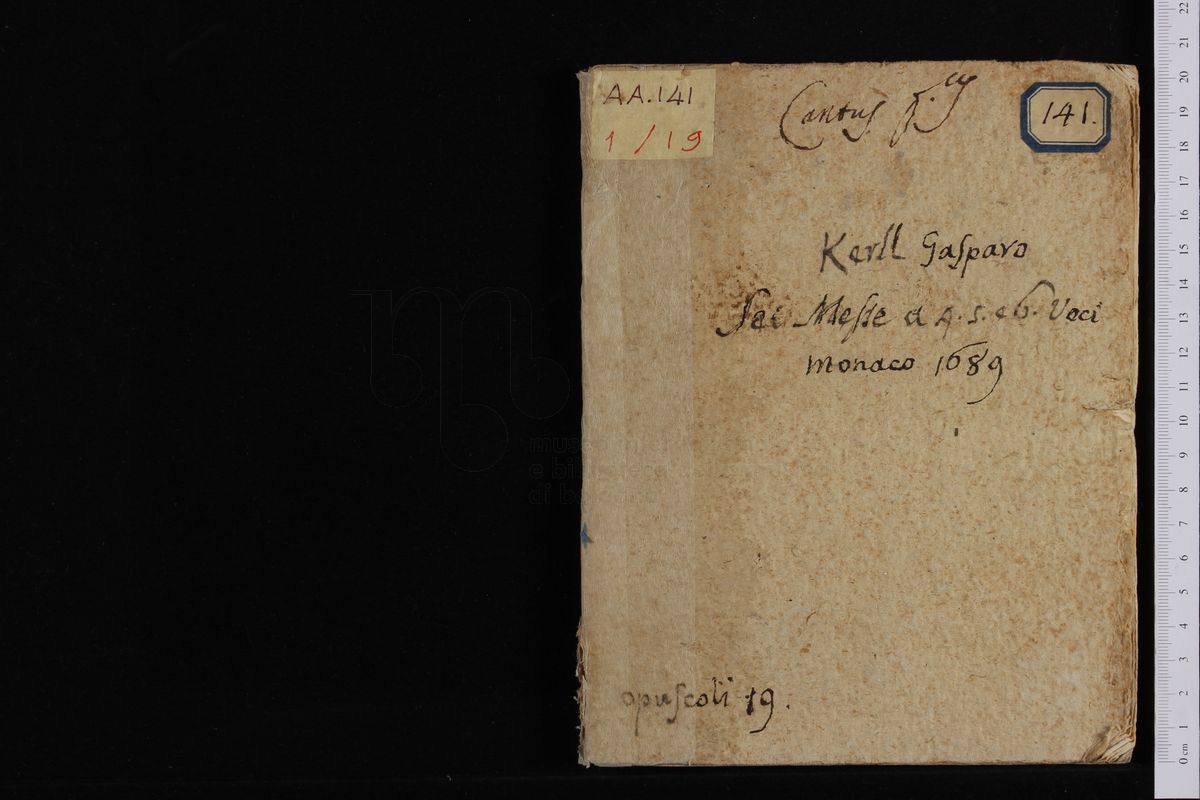 AA.141
1/19
Cantus
141.
Kerll Gasparo
Sei Messe a 4. 5. e 6. Voci
Monaco 1689
opuscoli 19.
museo
e biblioteca
di bologna
0 cm 1 2 3 4 5 6 7 8 9 10 11 12 13 14 15 16 17 18 19 20 21 22